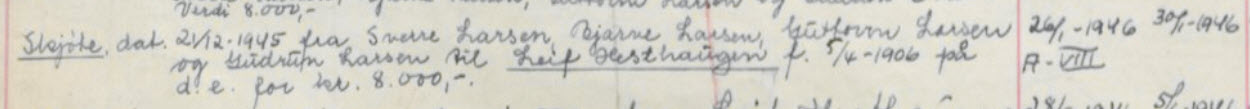 Verdi 8.000,-
Skjöte, dat. 21/12-1945 fra Sverre Larsen, Bjarne Larsen, Guttorm Larsen 26/1-1946 30/1-1946
og Gudrun Larsen til Leif Hesthaugen f. 5/4-1906 på A-VIII
d. e. for kr. 8.000,-.